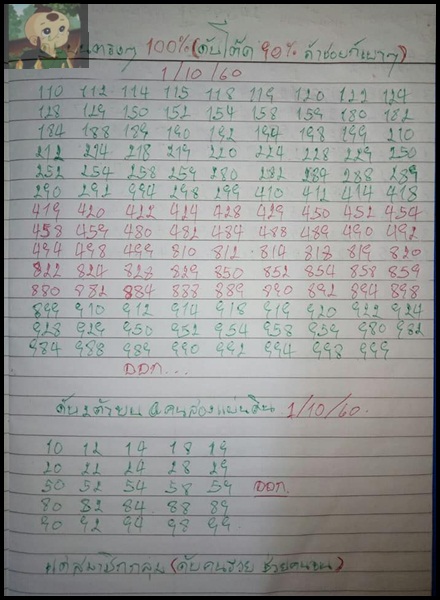 100% (ดับโต๊ด 90%
1/10/60
110 112 114 115 118 119 120 122 124
128 129 150 152 154 158 159 180 182
184 188 189 190 192 194 198 199 210
212 214 218 219 220 224 228 229 250
252 254 258 259 280 282 284 288 289
290 292 294 298 299 410 412 414 418
419 420 422 424 428 429 450 452 454
458 459 480 482 484 488 489 490 492
494 498 499 810 812 814 818 819 820
822 824 828 829 850 852 854 858 859
880 882 884 888 889 890 892 894 898
899 910 912 914 918 919 920 922 924
928 929 950 952 954 958 959 980 982
984 988 989 990 992 994 998 999
ออก...
ดับ 2 ตัวบน 1/10/60
10 12 14 18 19
20 22 24 28 29
50 52 54 58 59 ออก.
80 82 84 88 89
90 92 94 98 99
(ดับคนรวย ช่วยคนจน)